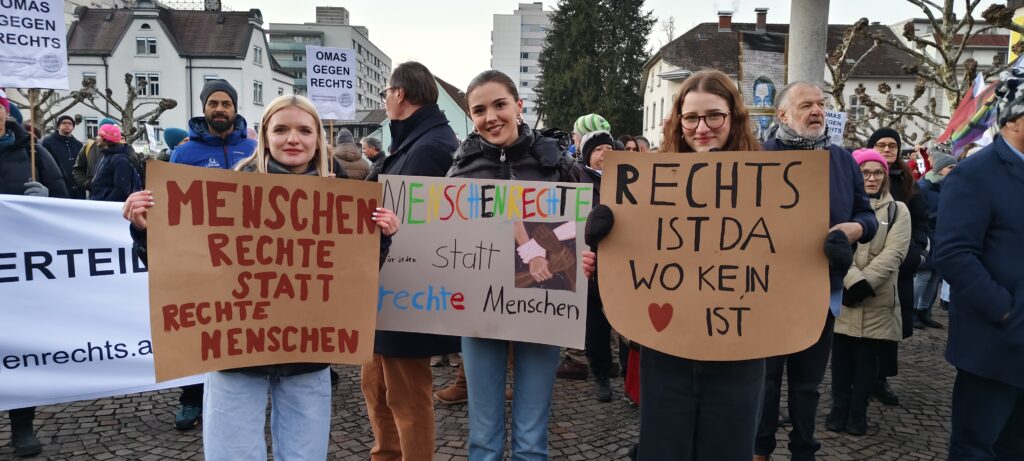 OMAS
GEGEN
RECHTS
OMAS
GEGEN
RECHTS
ERTEID
enrechts.a
MENSCHEN
RECHTE
STATT
RECHTE
MENSCHEN
MENSCHENRECHTE
für jeden statt
rechte Menschen
RECHTS
IST DA
WO KEIN
♥ IST